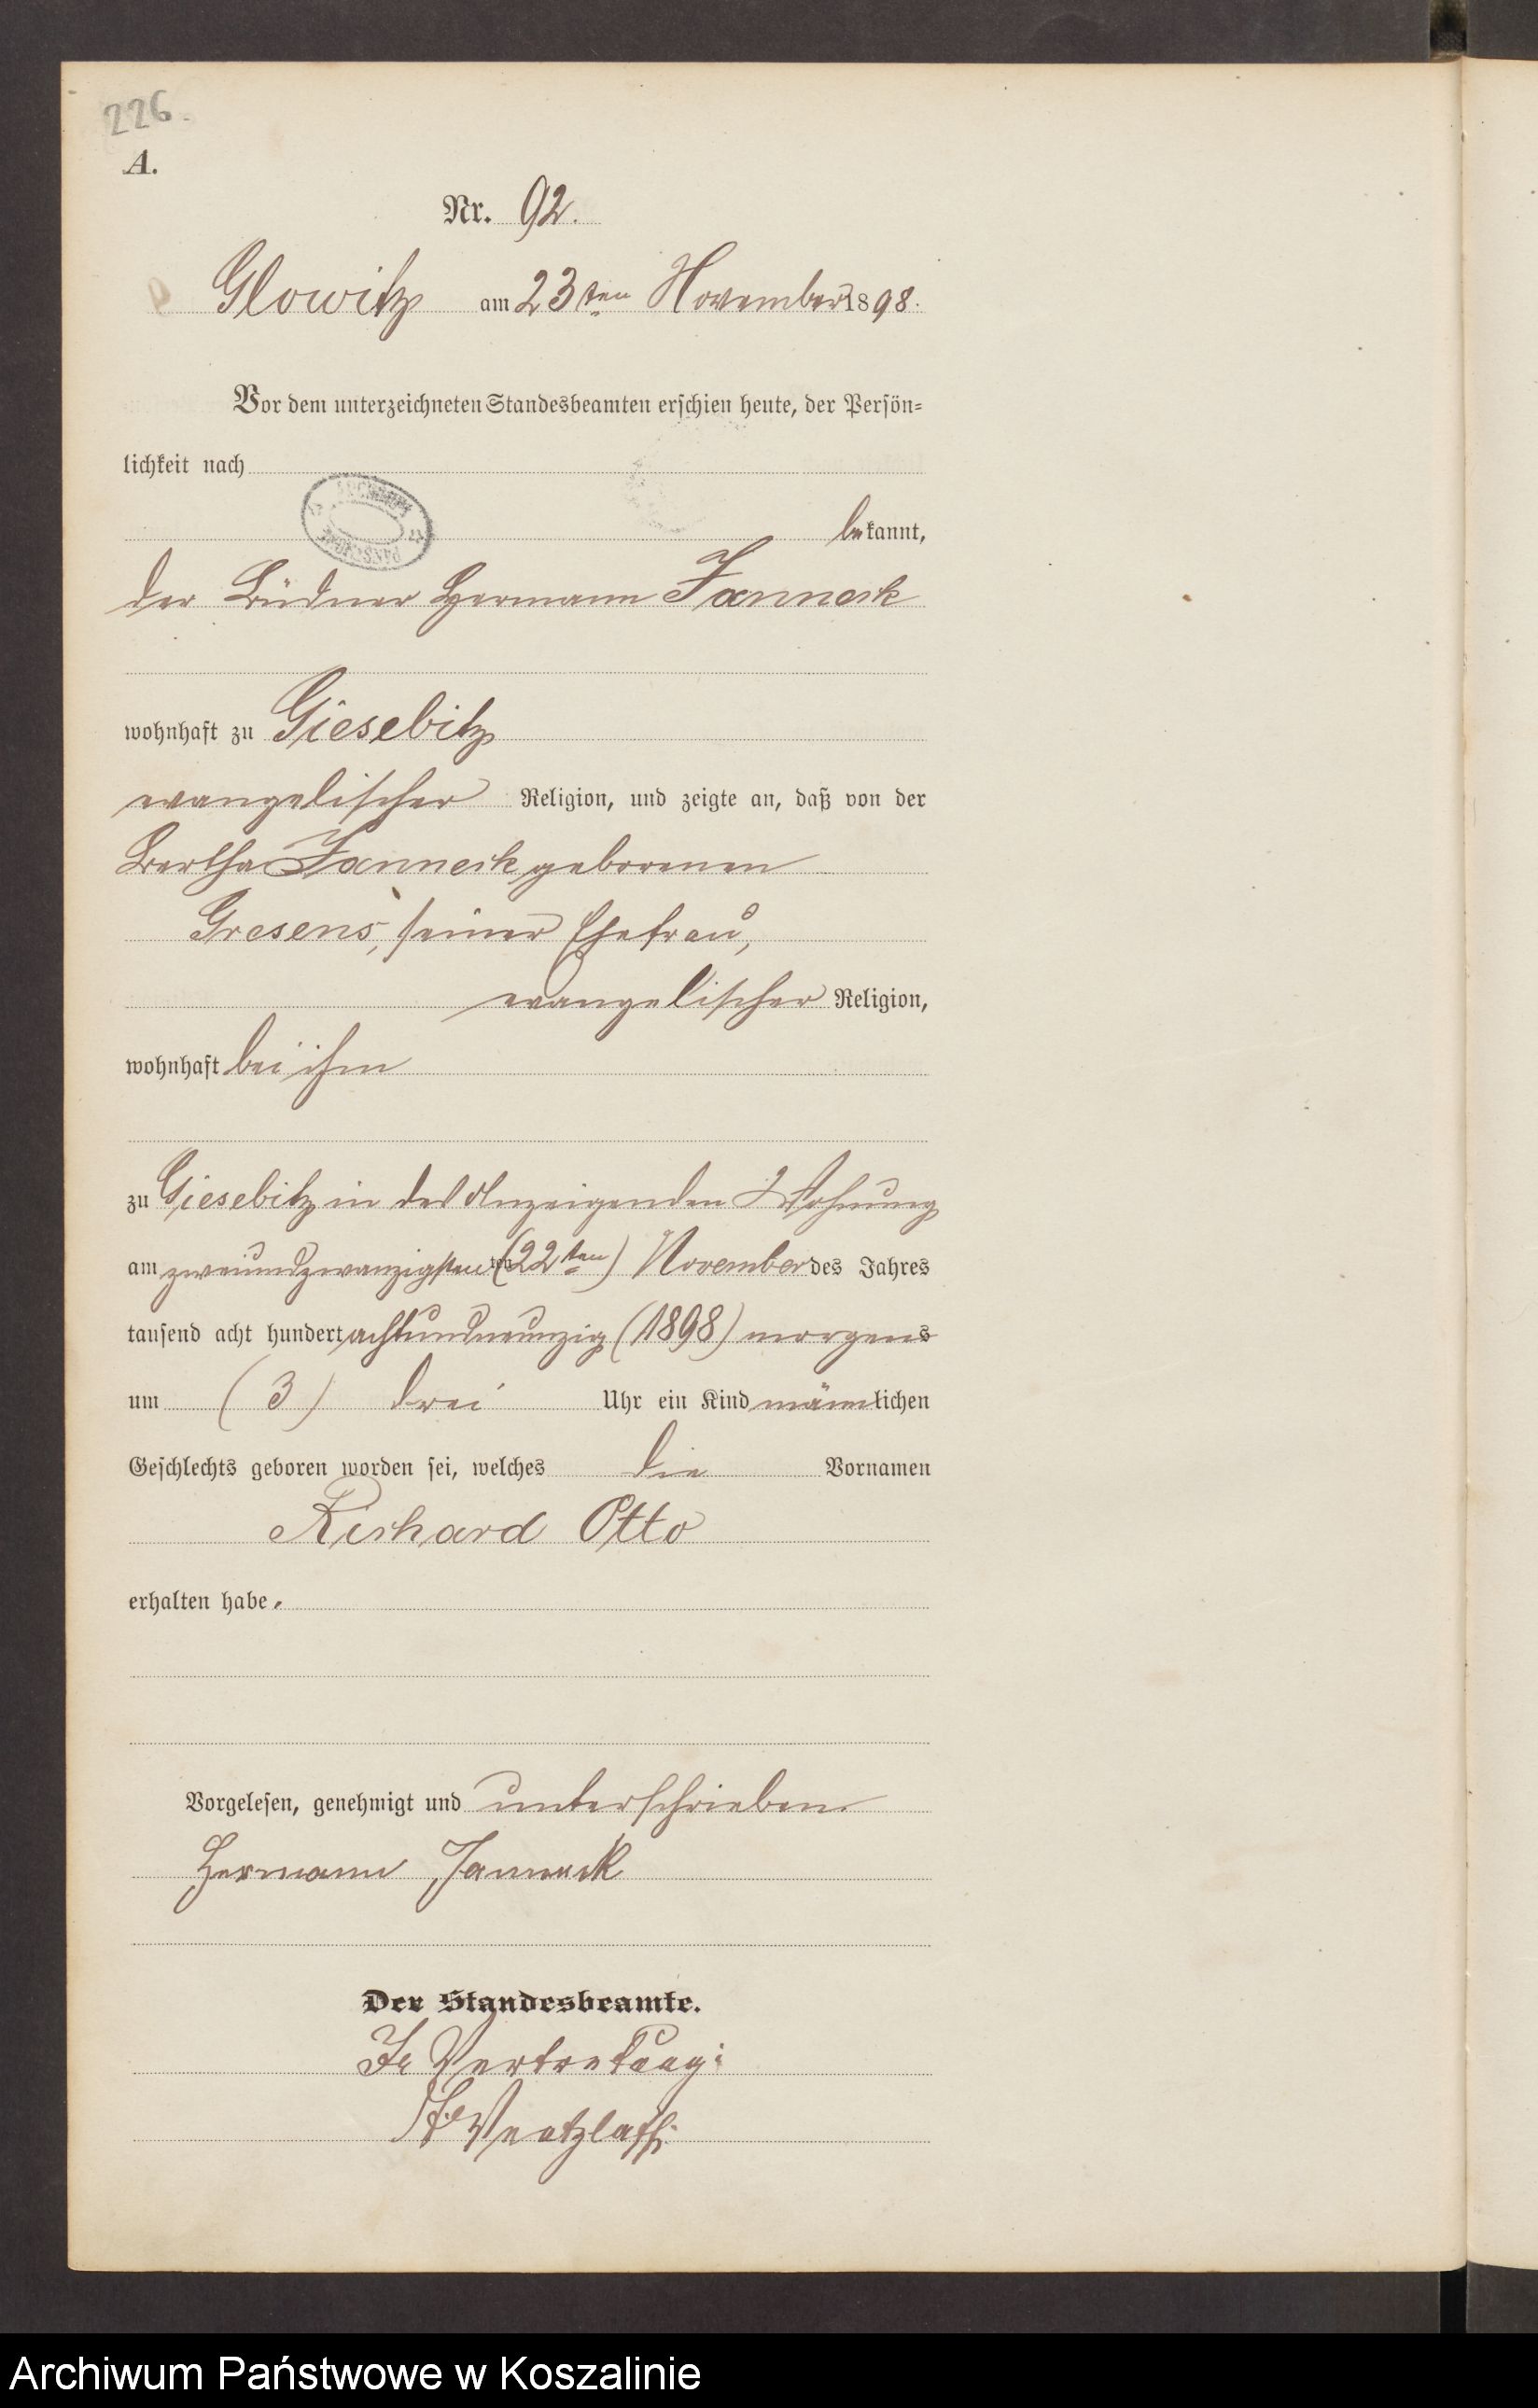 226.
A.
Nr. 92.
Glowitz am 23ten November 1898.
Vor dem unterzeichneten Standesbeamten erschien heute, der Persön-
lichkeit nach
bekannt,
der Büdner Hermann Janneck
wohnhaft zu Giesebitz
evangelischer Religion, und zeigte an, daß von der
Bertha Janneck geborenen
Gresens, seiner Ehefrau,
evangelischer Religion,
wohnhaft bei ihm
zu Giesebitz in des Anzeigenden Wohnung
am zweiundzwanzigsten ten (22ten) November des Jahres
tausend acht hundert achtundneunzig (1898) morgens
um (3) drei Uhr ein Kind männlichen
Geschlechts geboren worden sei, welches die Vornamen
Richard Otto
erhalten habe.
Vorgelesen, genehmigt und unterschrieben
Hermann Janneck
Der Standesbeamte.
In Vertretung:
Archiwum Państwowe w Koszalinie